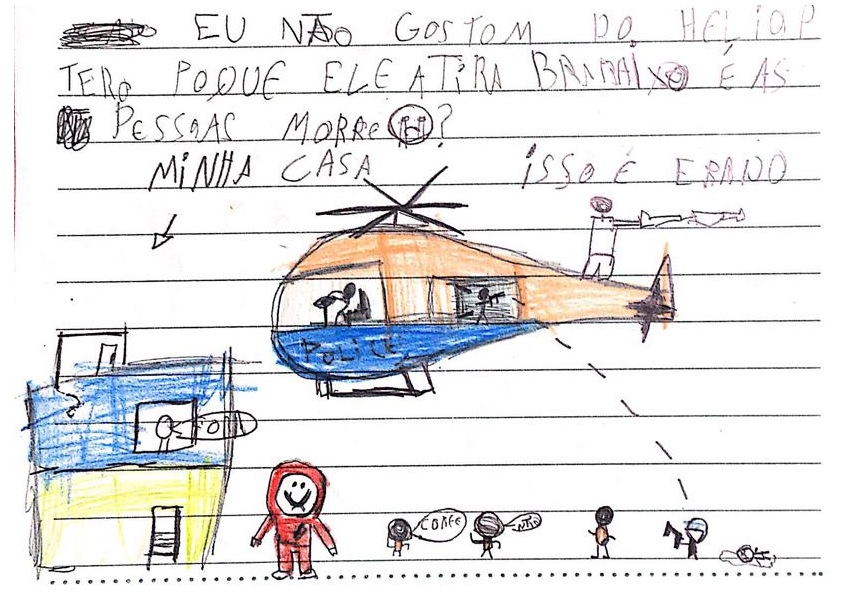 EU NÃO GOSTOM DO HELIOP
TERO POQUE ELE ATIRA BRABAIXO É AS
PESSOAS MORRE?
MINHA CASA
ISSO É ERADO
POLICE
CORFE
NÃO